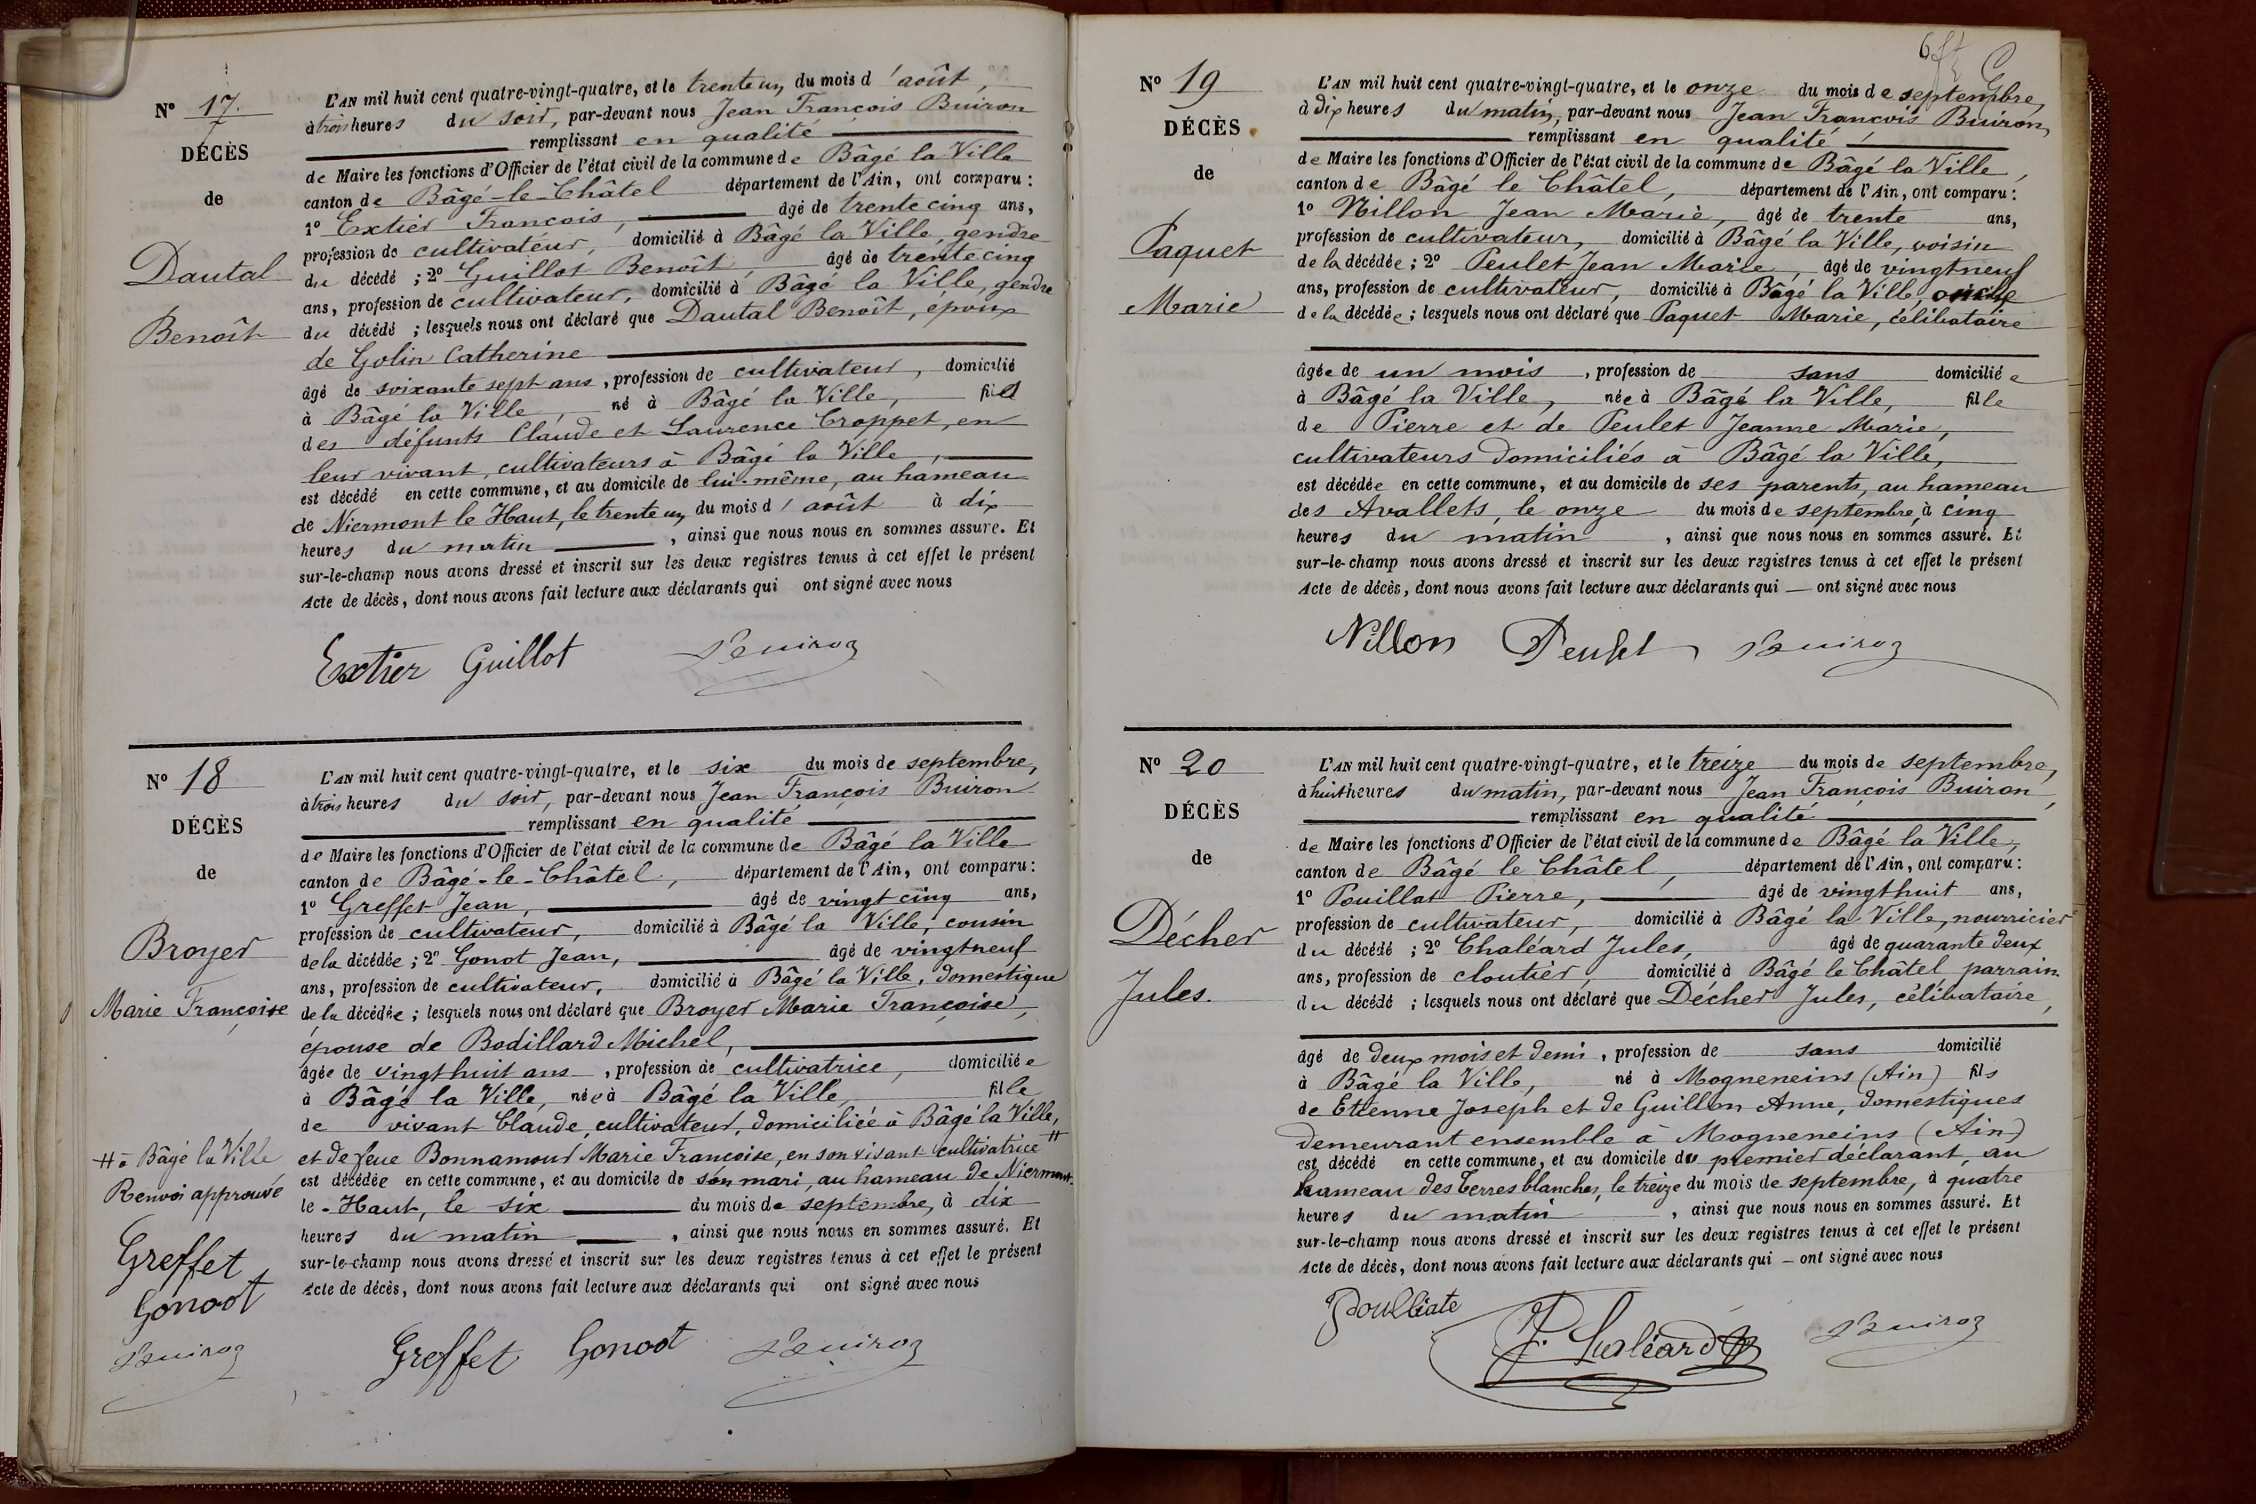 N° 17.
DÉCÈS
de
Dautal
Benoît
L'AN mil huit cent quatre-vingt-quatre, et le trente un du mois d'août,
à trois heures du soir, par-devant nous Jean François Buiron
remplissant en qualité
de Maire les fonctions d'Officier de l'état civil de la commune de Bâgé la Ville
canton de Bâgé-le-Châtel département de l'Ain, ont comparu :
1° Extier François, âgé de trente cinq ans,
profession de cultivateur, domicilié à Bâgé la Ville, gendre
du décédé ; 2° Guillot Benoît, âgé de trente cinq
ans, profession de cultivateur, domicilié à Bâgé la Ville, gendre
du décédé ; lesquels nous ont déclaré que Dautal Benoît, époux
de Golin Catherine
âgé de soixante sept ans, profession de cultivateur, domicilié
à Bâgé la Ville, né à Bâgé la Ville, fils
des défunts Claude et Laurence Croppet, en
leur vivant, cultivateurs à Bâgé la Ville,
est décédé en cette commune, et au domicile de lui-même, au hameau
de Niermont le Haut, le trente un du mois d'août à dix
heures du matin, ainsi que nous nous en sommes assuré. Et
sur-le-champ nous avons dressé et inscrit sur les deux registres tenus à cet effet le présent
Acte de décès, dont nous avons fait lecture aux déclarants qui ont signé avec nous
Extier Guillot Buiron
N° 18
DÉCÈS
de
Broyer
Marie Françoise
# à Bâgé la Ville
Renvoi approuvé
Greffet
Gonoot
Buiron
L'AN mil huit cent quatre-vingt-quatre, et le six du mois de septembre,
à trois heures du soir, par-devant nous Jean François Buiron
remplissant en qualité
de Maire les fonctions d'Officier de l'état civil de la commune de Bâgé la Ville
canton de Bâgé-le-Châtel, département de l'Ain, ont comparu :
1° Greffet Jean, âgé de vingt cinq ans,
profession de cultivateur, domicilié à Bâgé la Ville, cousin
de la décédée ; 2° Gonot Jean, âgé de vingt neuf
ans, profession de cultivateur, domicilié à Bâgé la Ville, domestique
de la décédée ; lesquels nous ont déclaré que Broyer Marie Françoise,
épouse de Bodillard Michel,
âgée de vingt huit ans, profession de cultivatrice, domiciliée
à Bâgé la Ville, née à Bâgé la Ville, fille
de vivant Claude, cultivateur, domiciliée à Bâgé la Ville,
et de feue Bonnamour Marie Françoise, en son vivant cultivatrice #
est décédée en cette commune, et au domicile de son mari, au hameau de Niermont-
le-Haut, le six du mois de septembre, à dix
heures du matin, ainsi que nous nous en sommes assuré. Et
sur-le-champ nous avons dressé et inscrit sur les deux registres tenus à cet effet le présent
Acte de décès, dont nous avons fait lecture aux déclarants qui ont signé avec nous
Greffet Gonoot Buiron
N° 19
DÉCÈS
de
Paquet
Marie
L'AN mil huit cent quatre-vingt-quatre, et le onze du mois de septembre,
à dix heures du matin, par-devant nous Jean François Buiron,
remplissant en qualité
de Maire les fonctions d'Officier de l'état civil de la commune de Bâgé la Ville,
canton de Bâgé le Châtel, département de l'Ain, ont comparu :
1° Nillon Jean Marie, âgé de trente ans,
profession de cultivateur, domicilié à Bâgé la Ville, voisin
de la décédée ; 2° Peulet Jean Marie, âgé de vingt neuf
ans, profession de cultivateur, domicilié à Bâgé la Ville, oncle
de la décédée ; lesquels nous ont déclaré que Paquet Marie, célibataire
âgée de un mois, profession de sans domiciliée
à Bâgé la Ville, née à Bâgé la Ville, fille
de Pierre et de Peulet Jeanne Marie,
cultivateurs domiciliés à Bâgé la Ville,
est décédée en cette commune, et au domicile de ses parents, au hameau
des Avallets, le onze du mois de septembre, à cinq
heures du matin, ainsi que nous nous en sommes assuré. Et
sur-le-champ nous avons dressé et inscrit sur les deux registres tenus à cet effet le présent
Acte de décès, dont nous avons fait lecture aux déclarants qui — ont signé avec nous
Nillon Peulet Buiron
N° 20
DÉCÈS
de
Décher
Jules.
L'AN mil huit cent quatre-vingt-quatre, et le treize du mois de septembre,
à huit heures du matin, par-devant nous Jean François Buiron,
remplissant en qualité
de Maire les fonctions d'Officier de l'état civil de la commune de Bâgé la Ville,
canton de Bâgé le Châtel, département de l'Ain, ont comparu :
1° Pouillat Pierre, âgé de vingt huit ans,
profession de cultivateur, domicilié à Bâgé la Ville, nourricier
du décédé ; 2° Chaléard Jules, âgé de quarante deux
ans, profession de cloutier, domicilié à Bâgé le Châtel parrain
du décédé ; lesquels nous ont déclaré que Décher Jules, célibataire,
âgé de deux mois et demi, profession de sans domicilié
à Bâgé la Ville, né à Mogneneins (Ain) fils
de Etienne Joseph et de Guillon Anne, domestiques
demeurant ensemble à Mogneneins (Ain)
est décédé en cette commune, et au domicile du premier déclarant, au
hameau des Terres blanches, le treize du mois de septembre, à quatre
heures du matin, ainsi que nous nous en sommes assuré. Et
sur-le-champ nous avons dressé et inscrit sur les deux registres tenus à cet effet le présent
Acte de décès, dont nous avons fait lecture aux déclarants qui — ont signé avec nous
Poulliate J. Chaléard Buiron